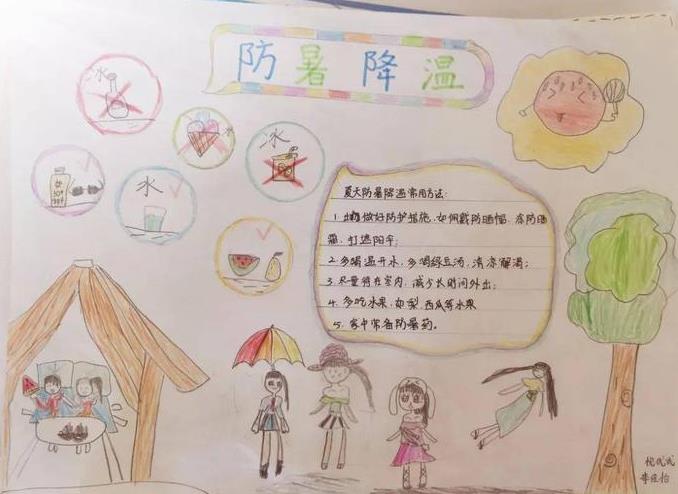 防暑降温
冰
冰
水
夏天防暑降温常用方法:
1.出门做好防护措施,如佩戴防晒帽、涂防晒
霜、打遮阳伞;
2.多喝温开水,多喝绿豆汤,清凉解渴;
3.尽量待在室内,减少长时间外出;
4.多吃水果,如梨、西瓜等水果
5.家中常备防暑药。